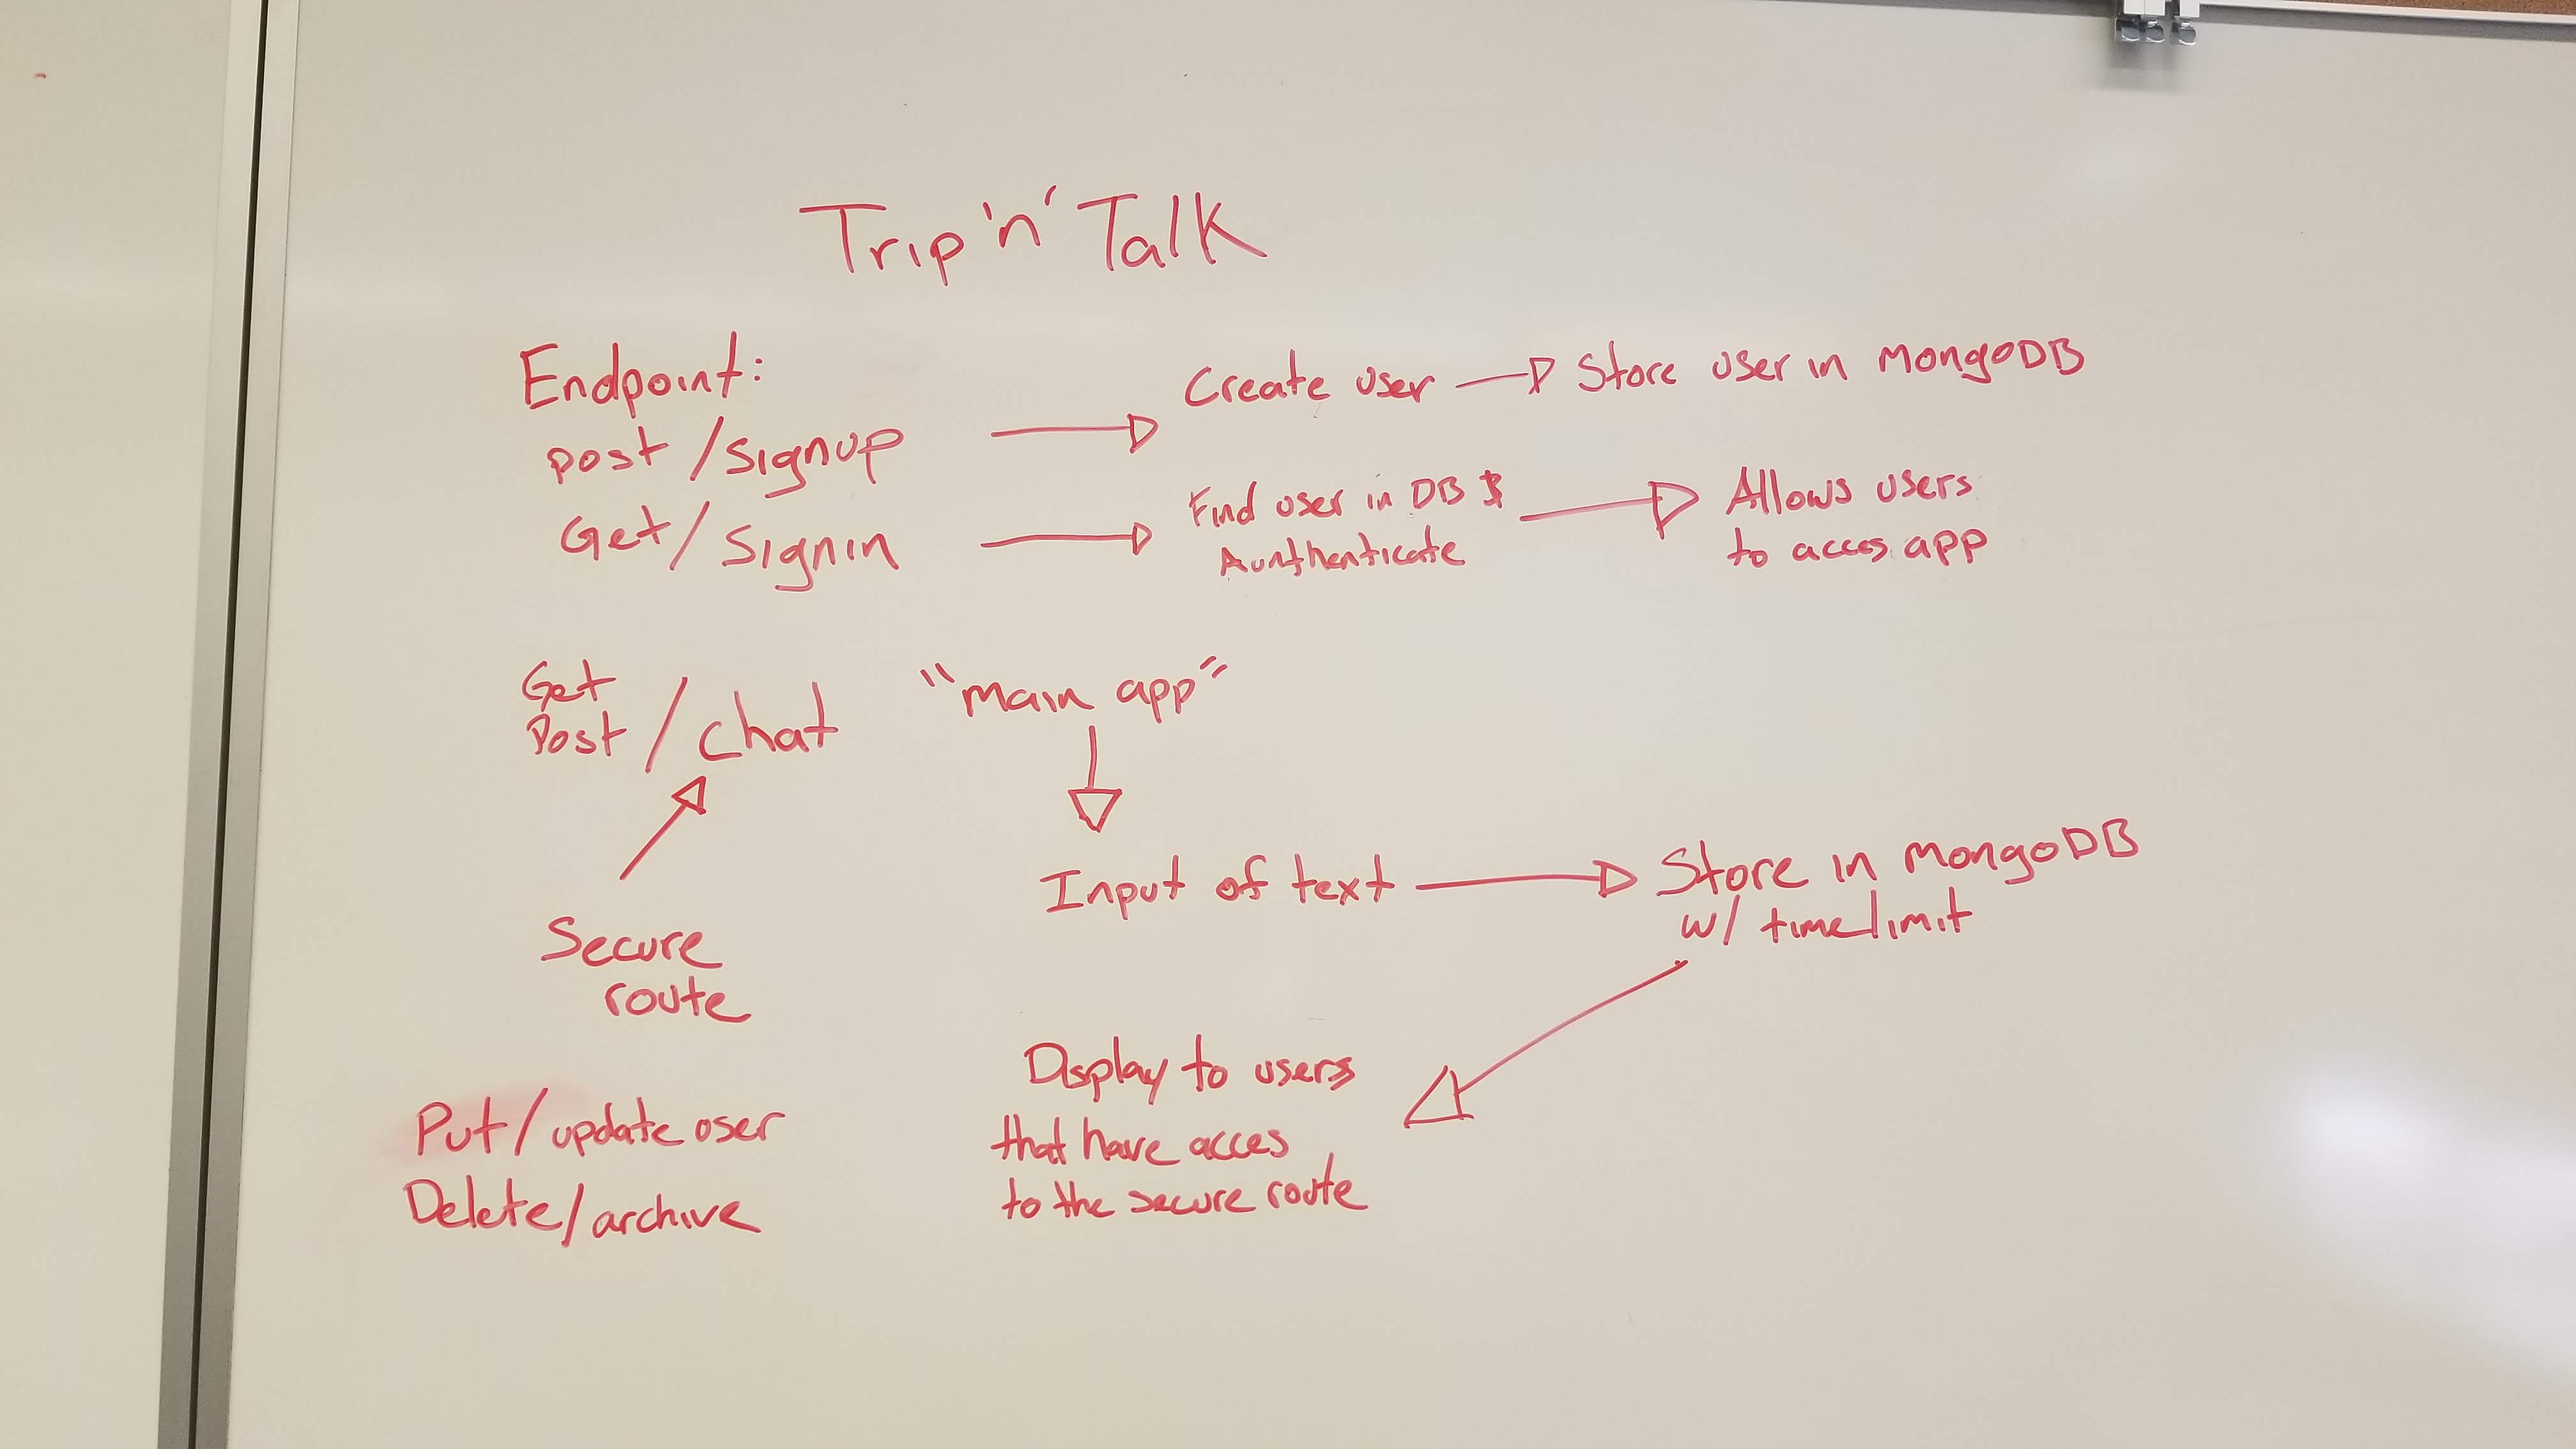 Trip 'n' Talk
Endpoint:
post /signup
Create user
Store user in MongoDB
Get/ Signin
Find user in DB &
Aunthenticate
Allows users
to acces app
Get
Post /chat
"main app"
Secure
route
Input of text
Store in MongoDB
w/ timelimit
Display to users
that have acces
to the secure route
Put/update user
Delete/archive